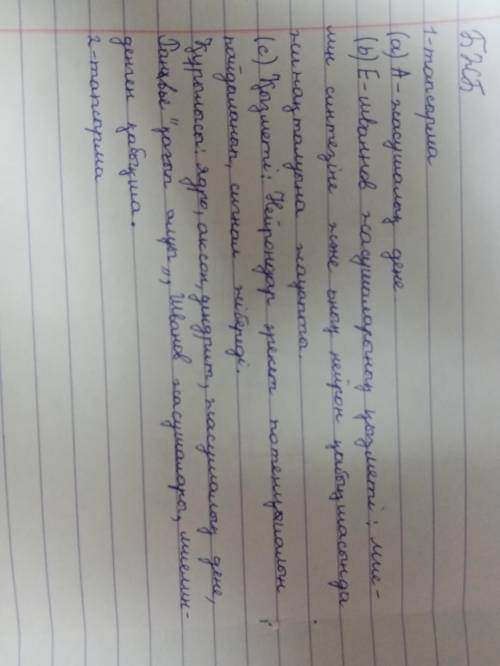 БЖБ
1-тапсырма
(a) А-жасушалық дене
(b) Е-шваннов жасушаларының қызметі; мие-
лин синтезіне және оның нейрон қабықшасында
жинақталуына жауапты.
(c) Қызметі; Нейрондар әрекет потенциалын
пайдаланып, сигнал жібереді
Құрылысы: ядро, аксон, дендрит, жасушалық дене,
Ранвье "үзіліп алуы", Шванов жасушалары, миелин-
денген қабықша.
2-тапсырма